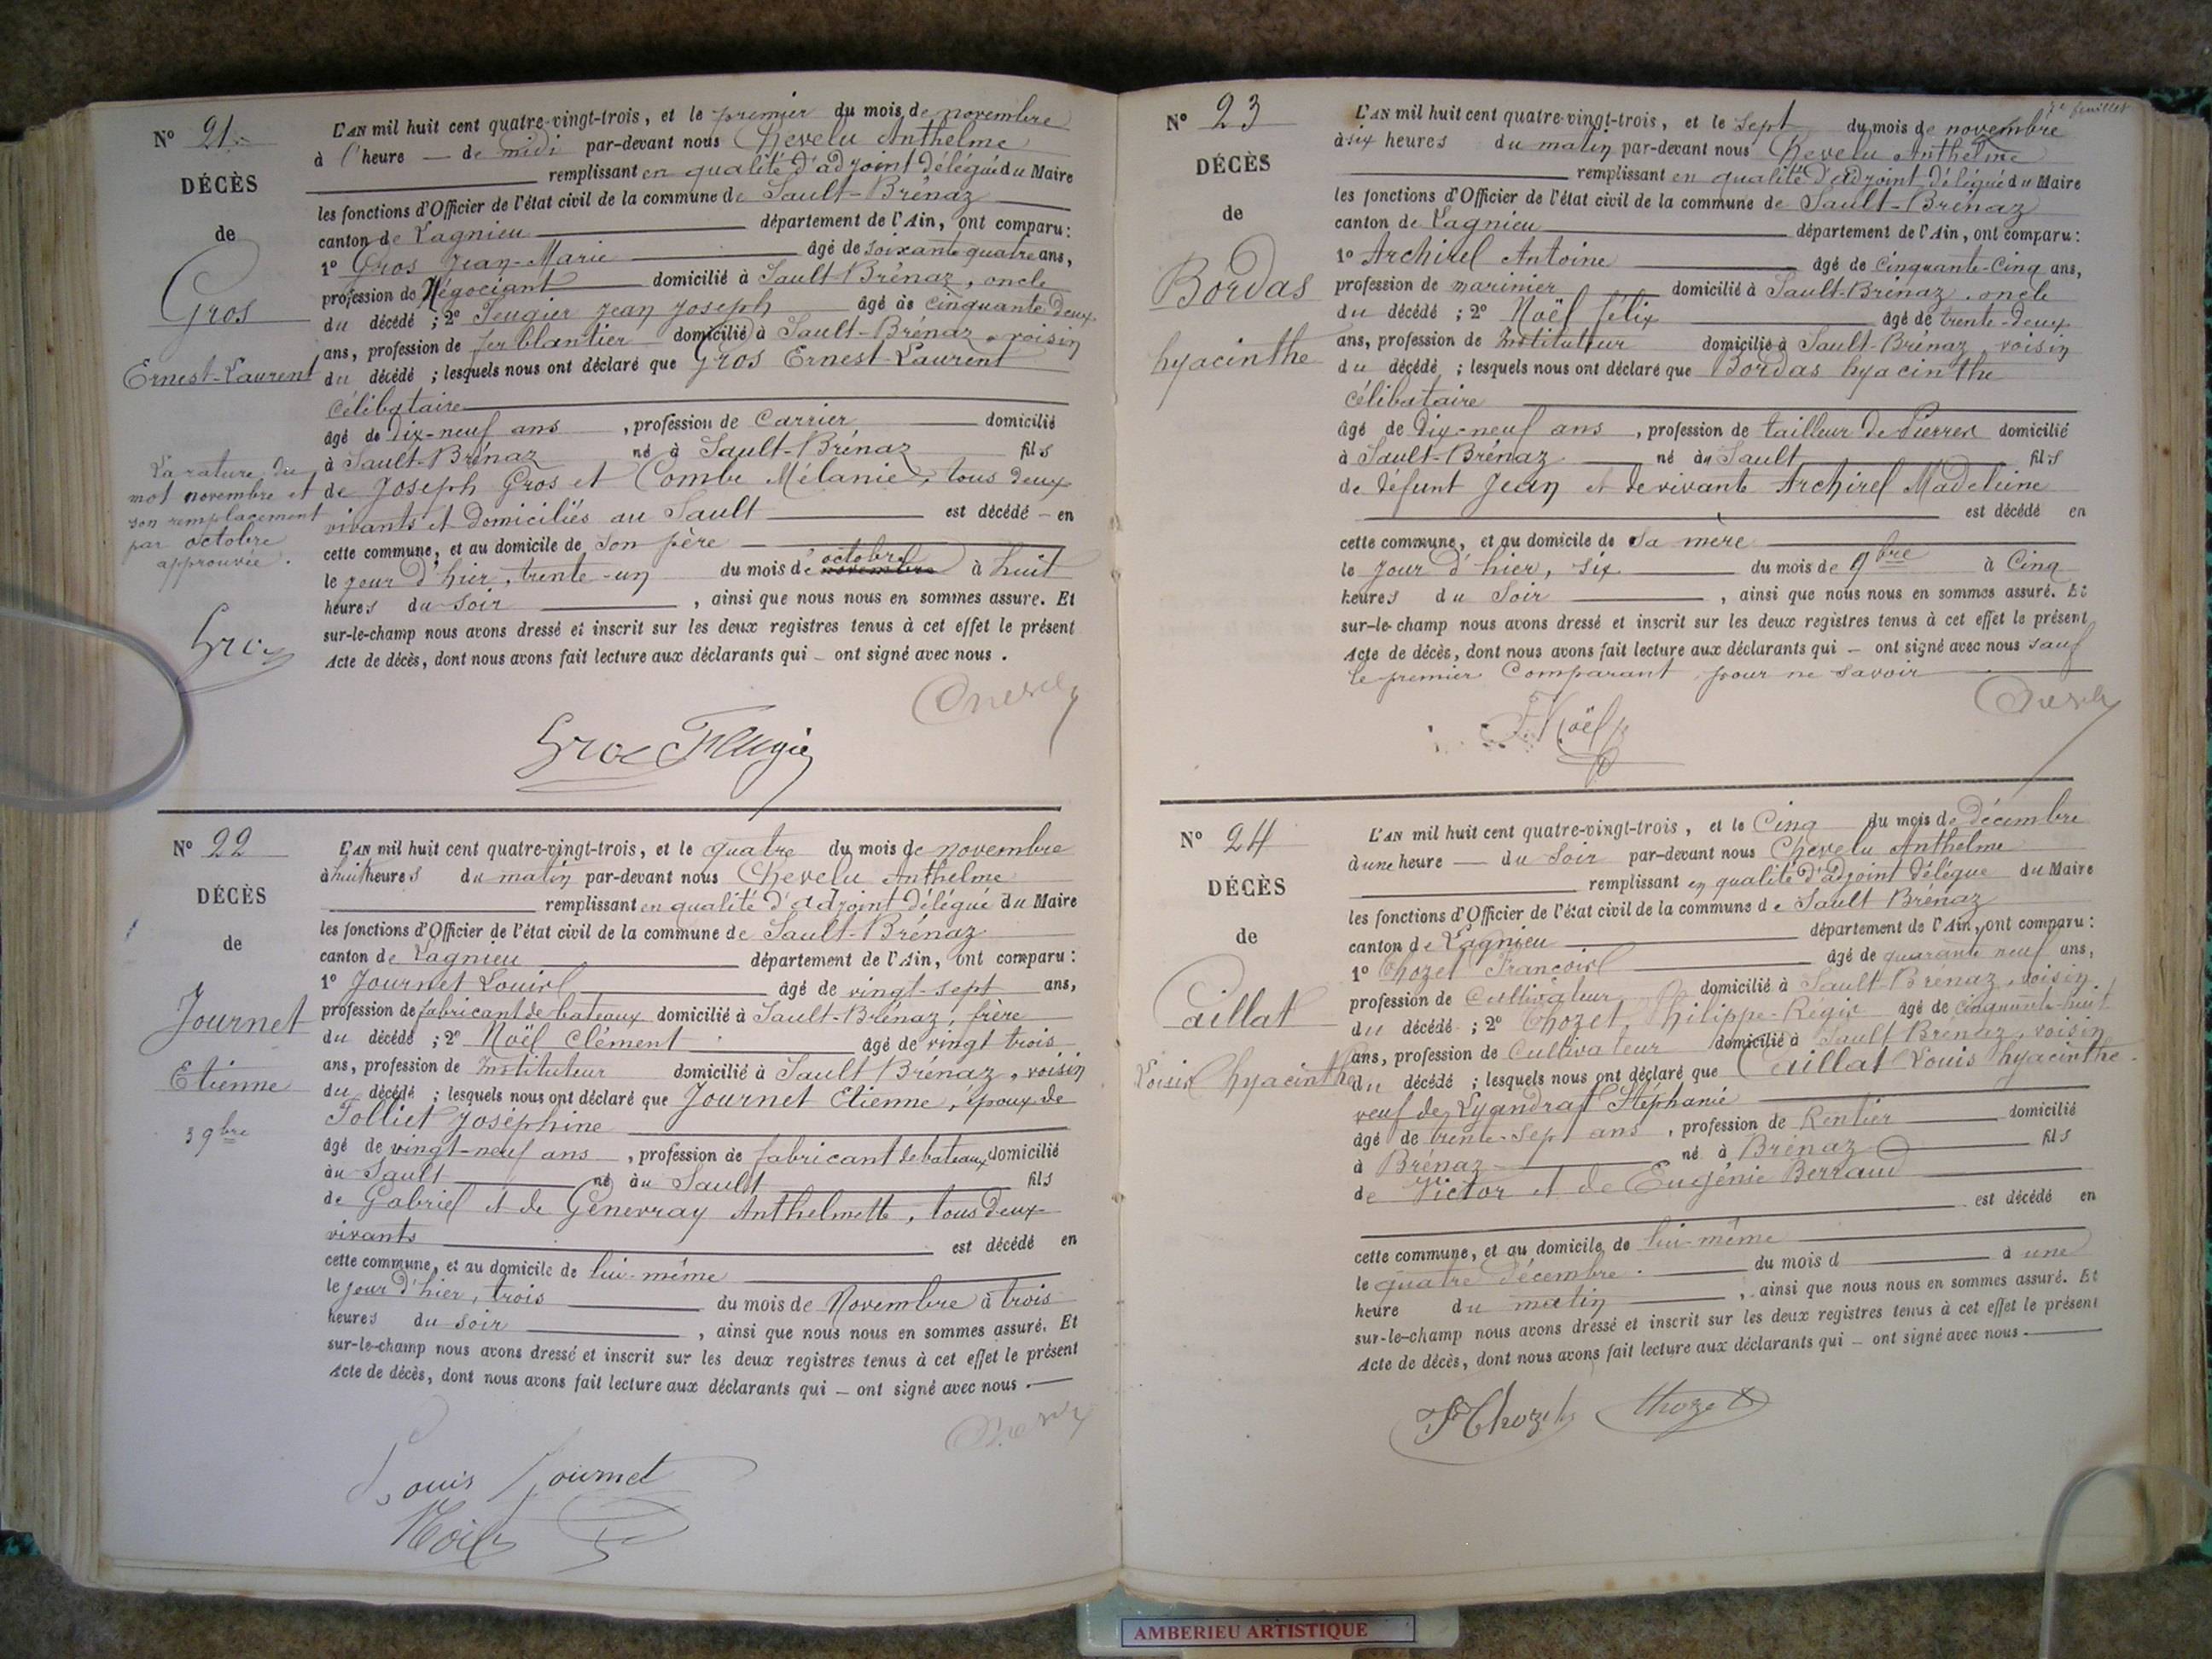 Nº 21
DÉCÈS
de
Gros
Ernest-Laurent
La rature du
mot novembre et
son remplacement
par octobre
approuvée.
Gros
L'AN mil huit cent quatre-vingt-trois, et le premier du mois de novembre
à l'heure — de midi par-devant nous Chevelu Anthelme
remplissant en qualité d'adjoint délégué du Maire
les fonctions d'Officier de l'état civil de la commune de Sault-Brénaz
canton de Lagnieu département de l'Ain, ont comparu :
1º Gros Jean-Marie âgé de soixante quatre ans,
profession de Négociant domicilié à Sault-Brénaz, oncle
du décédé ; 2º Feugier Jean Joseph âgé de cinquante deux
ans, profession de ferblantier domicilié à Sault-Brénaz, voisin
du décédé ; lesquels nous ont déclaré que Gros Ernest-Laurent
célibataire
âgé de dix-neuf ans, profession de Carrier domicilié
à Sault-Brénaz né à Sault-Brénaz fils
de Joseph Gros et Combe Mélanie, tous deux
vivants et domiciliés au Sault est décédé — en
cette commune, et au domicile de son père
le jour d'hier, trente-un du mois de novembre octobre à huit
heures du soir, ainsi que nous nous en sommes assuré. Et
sur-le-champ nous avons dressé et inscrit sur les deux registres tenus à cet effet le présent
Acte de décès, dont nous avons fait lecture aux déclarants qui — ont signé avec nous.
Gros Feugier
Nº 22
DÉCÈS
de
Journet
Etienne
3 9bre
L'AN mil huit cent quatre-vingt-trois, et le quatre du mois de novembre
à huit heures du matin par-devant nous Chevelu Anthelme
remplissant en qualité d'adjoint délégué du Maire
les fonctions d'Officier de l'état civil de la commune de Sault-Brénaz
canton de Lagnieu département de l'Ain, ont comparu :
1º Journet Louis âgé de vingt-sept ans,
profession de fabricant de bateaux domicilié à Sault-Brénaz, frère
du décédé ; 2º Noël Clément âgé de vingt trois
ans, profession de Instituteur domicilié à Sault Brénaz, voisin
du décédé ; lesquels nous ont déclaré que Journet Etienne, époux de
Tolliet Joséphine
âgé de vingt-neuf ans, profession de fabricant de bateaux domicilié
au Sault né au Sault fils
de Gabriel et de Génevray Anthelmette, tous deux
vivants est décédé en
cette commune, et au domicile de lui-même
le jour d'hier, trois du mois de Novembre à trois
heures du soir, ainsi que nous nous en sommes assuré. Et
sur-le-champ nous avons dressé et inscrit sur les deux registres tenus à cet effet le présent
Acte de décès, dont nous avons fait lecture aux déclarants qui — ont signé avec nous.
Louis Journet
Noël
7e feuillet
Nº 23
DÉCÈS
de
Bordas
hyacinthe
L'AN mil huit cent quatre-vingt-trois, et le sept du mois de novembre
à six heures du matin par-devant nous Chevelu Anthelme
remplissant en qualité d'adjoint délégué du Maire
les fonctions d'Officier de l'état civil de la commune de Sault-Brénaz
canton de Lagnieu département de l'Ain, ont comparu :
1º Archirel Antoine âgé de cinquante-cinq ans,
profession de marinier domicilié à Sault-Brénaz, oncle
du décédé ; 2º Noël félix âgé de trente-deux
ans, profession de Instituteur domicilié à Sault-Brénaz, voisin
du décédé ; lesquels nous ont déclaré que Bordas hyacinthe
célibataire
âgé de Dix-neuf ans, profession de tailleur de Pierres domicilié
à Sault-Brénaz né au Sault fils
de défunt Jean et de vivante Archirel Madeleine
est décédé en
cette commune, et au domicile de sa mère
le jour d'hier, six du mois de 9bre à cinq
heures du soir, ainsi que nous nous en sommes assuré. Et
sur-le-champ nous avons dressé et inscrit sur les deux registres tenus à cet effet le présent
Acte de décès, dont nous avons fait lecture aux déclarants qui — ont signé avec nous sauf
le premier Comparant pour ne savoir
F. Noël
Nº 24
DÉCÈS
de
Caillat
Louis hyacinthe
L'AN mil huit cent quatre-vingt-trois, et le cinq du mois de décembre
à une heure — du soir par-devant nous Chevelu Anthelme
remplissant en qualité d'adjoint délégué du Maire
les fonctions d'Officier de l'état civil de la commune de Sault Brénaz
canton de Lagnieu département de l'Ain, ont comparu :
1º Thozet François âgé de quarante neuf ans,
profession de Cultivateur domicilié à Sault-Brénaz, voisin
du décédé ; 2º Thozet Philippe-Régis âgé de cinquante-huit
ans, profession de Cultivateur domicilié à Sault Brénaz, voisin
du décédé ; lesquels nous ont déclaré que Caillat Louis hyacinthe
veuf de Lyandrat Stéphanie
âgé de trente-sept ans, profession de Rentier domicilié
à Brénaz né à Brénaz fils
de Victor et de Eugénie Berraud
est décédé en
cette commune, et au domicile de lui-même
le quatre décembre du mois d à une
heure du matin, ainsi que nous nous en sommes assuré. Et
sur-le-champ nous avons dressé et inscrit sur les deux registres tenus à cet effet le présent
Acte de décès, dont nous avons fait lecture aux déclarants qui — ont signé avec nous
Thozet Thozet
AMBERIEU ARTISTIQUE